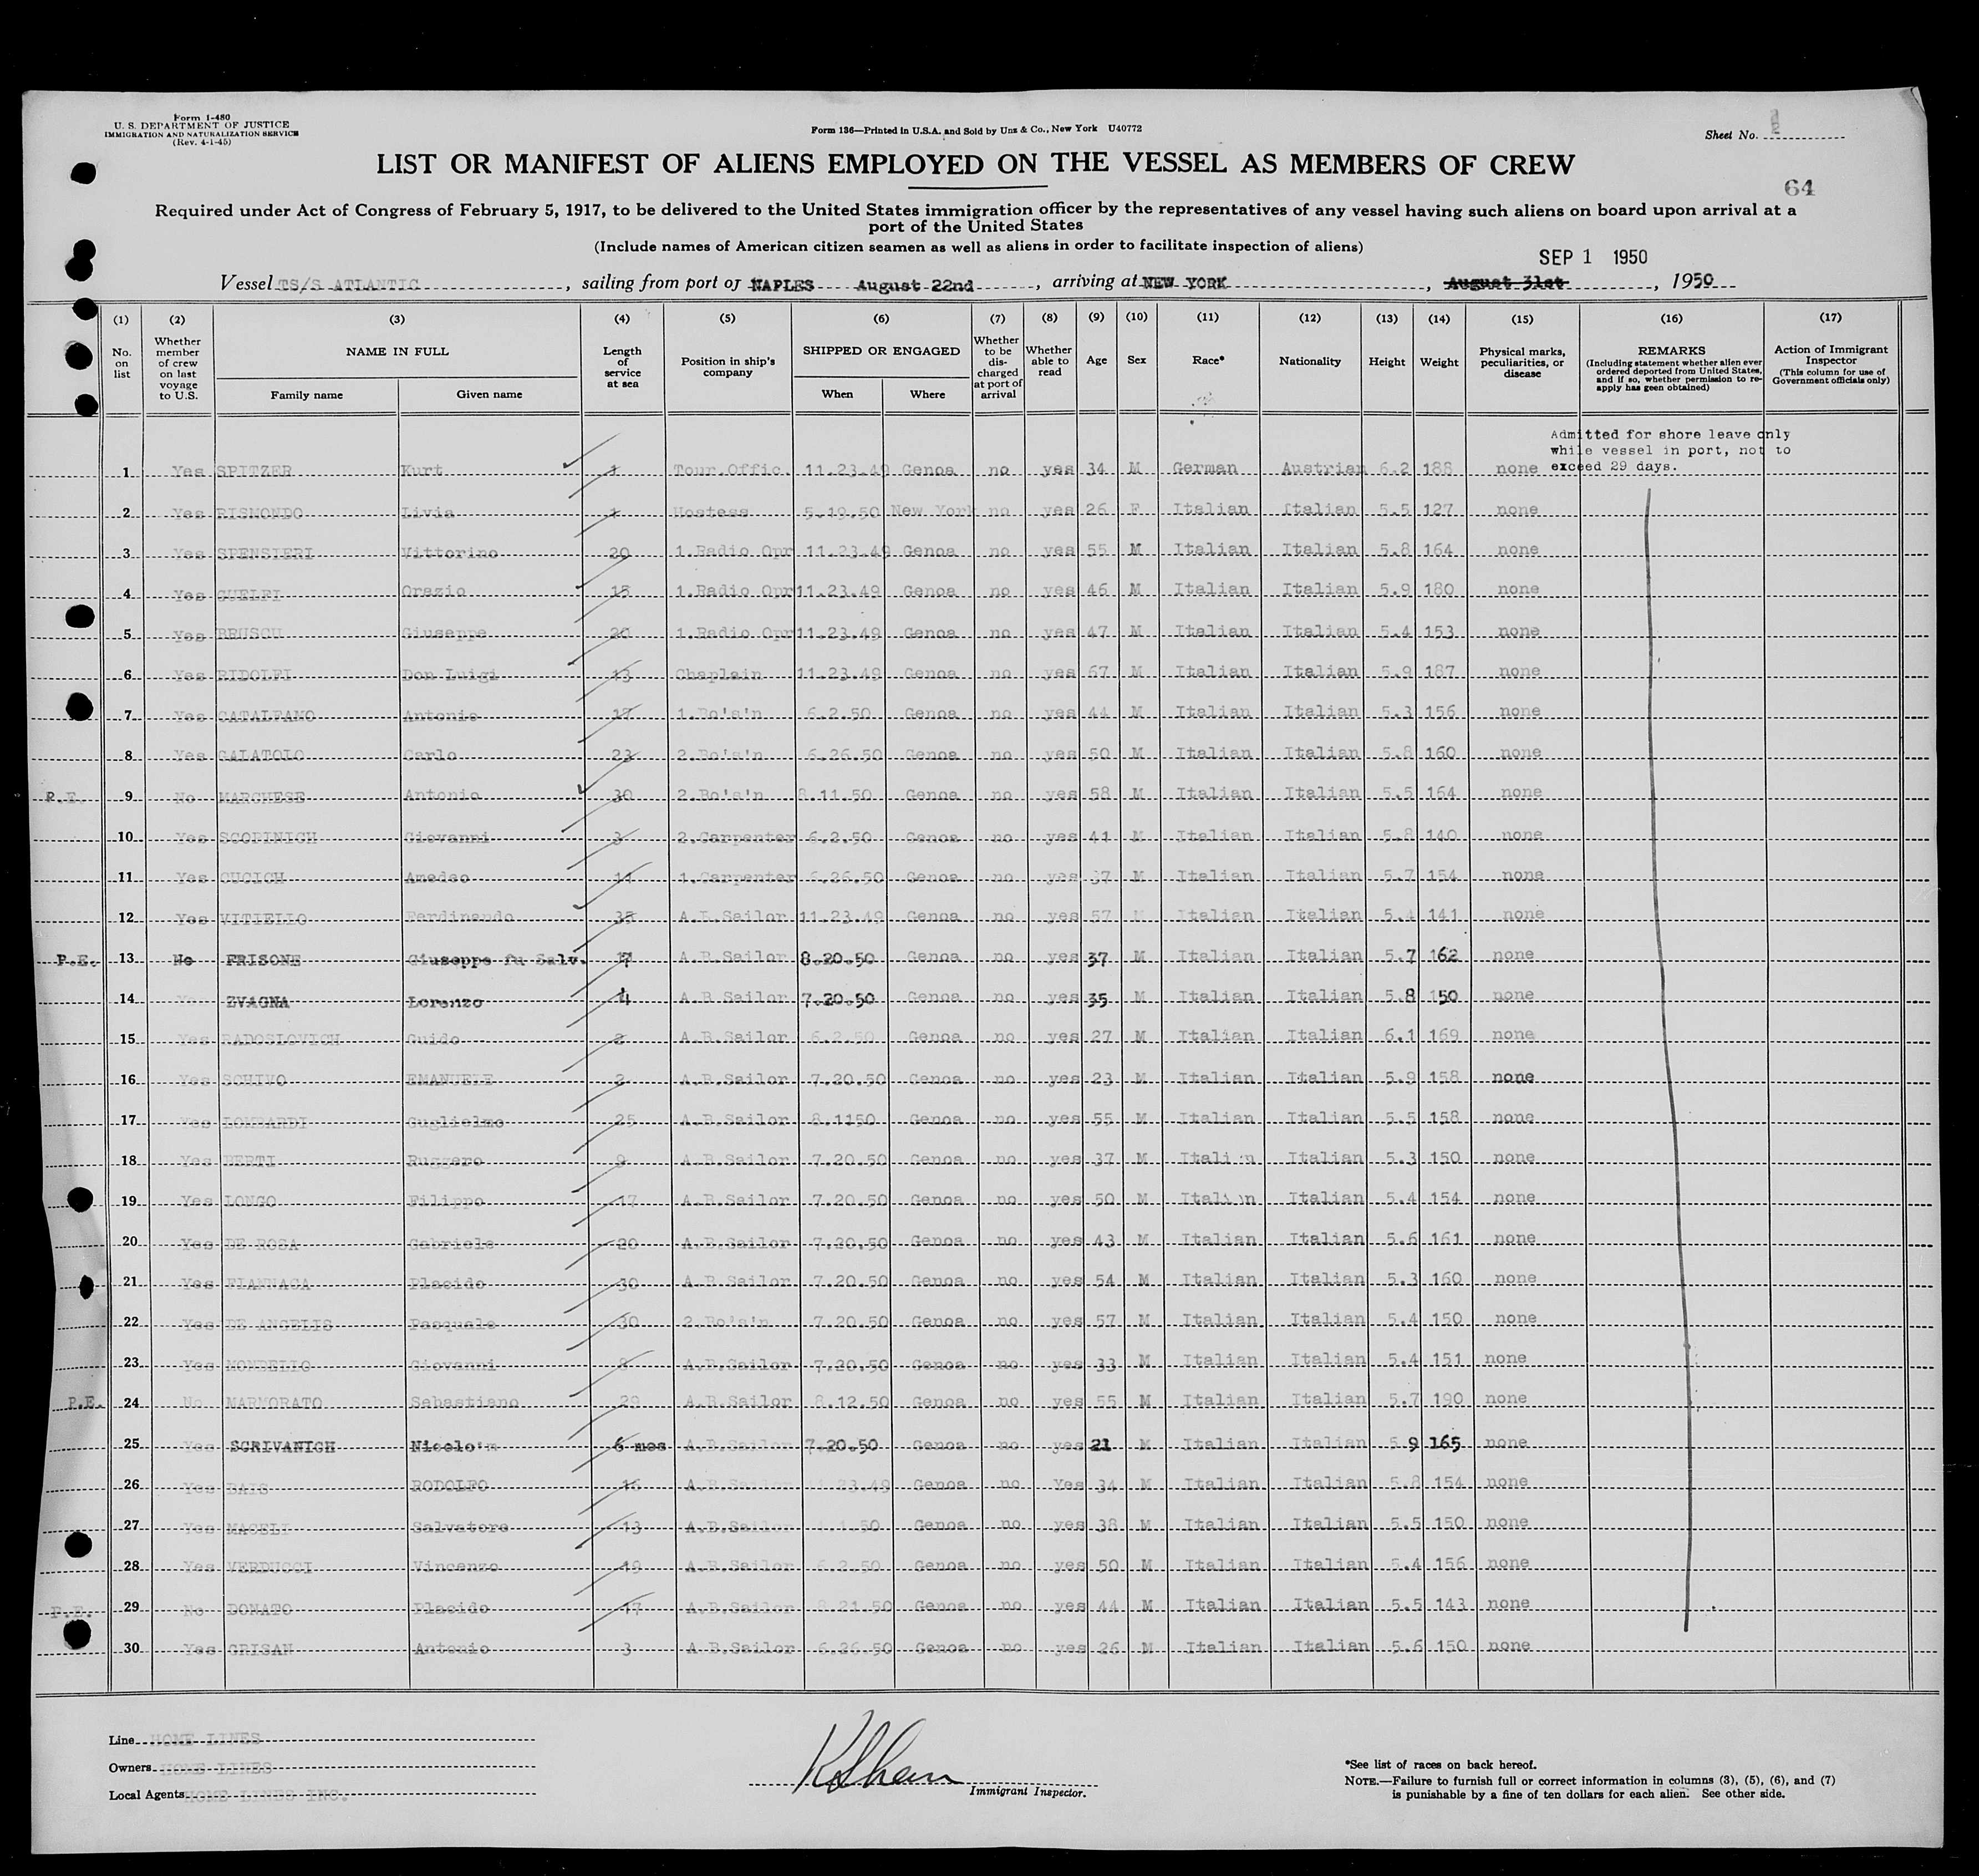 Form I-480
U. S. DEPARTMENT OF JUSTICE
IMMIGRATION AND NATURALIZATION SERVICE
(Rev. 4-1-45)
Form 136—Printed in U.S.A. and Sold by Unz & Co., New York U40772
Sheet No. 2
LIST OR MANIFEST OF ALIENS EMPLOYED ON THE VESSEL AS MEMBERS OF CREW
64
Required under Act of Congress of February 5, 1917, to be delivered to the United States immigration officer by the representatives of any vessel having such aliens on board upon arrival at a
port of the United States
(Include names of American citizen seamen as well as aliens in order to facilitate inspection of aliens)
SEP 1 1950
Vessel TS/S ATLANTIC, sailing from port of NAPLES August 22nd, arriving at NEW YORK, August 31st, 1950
(1) (2) (3) (4) (5) (6) (7) (8) (9) (10) (11) (12) (13) (14) (15) (16) (17)
No. on list
Whether member of crew on last voyage to U.S.
NAME IN FULL
Family name
Given name
Length of service at sea
Position in ship's company
SHIPPED OR ENGAGED
When
Where
Whether to be discharged at port of arrival
Whether able to read
Age
Sex
Race*
Nationality
Height
Weight
Physical marks, peculiarities, or disease
REMARKS
(Including statement whether alien ever ordered deported from United States, and if so, whether permission to re-apply has geen obtained)
Action of Immigrant Inspector
(This column for use of Government officials only)
Admitted for shore leave only
while vessel in port, not to
exceed 29 days.
1 Yes SPITZER Kurt 1 Tour.Offic. 11.23.49 Genoa no yes 34 M German Austrian 6.2 188 none
2 Yes RISMONDO Livia 1 Hostess 5.19.50 New York no yes 26 F Italian Italian 5.5 127 none
3 Yes SPENSIERI Vittorino 20 1.Radio Opr 11.23.49 Genoa no yes 55 M Italian Italian 5.8 164 none
4 Yes GUELFI Orazio 15 1.Radio Opr 11.23.49 Genoa no yes 46 M Italian Italian 5.9 180 none
5 Yes BRUSCU Giuseppe 20 1.Radio Opr 11.23.49 Genoa no yes 47 M Italian Italian 5.4 153 none
6 Yes RIDOLFI Don Luigi 13 Chaplain 11.23.49 Genoa no yes 67 M Italian Italian 5.9 187 none
7 Yes CATALFAMO Antonio 17 1.Bo's'n 6.2.50 Genoa no yes 44 M Italian Italian 5.3 156 none
8 Yes GALATOLO Carlo 23 2.Bo's'n 6.26.50 Genoa no yes 50 M Italian Italian 5.8 160 none
P.E. 9 No MARCHESE Antonio 30 2.Bo's'n 8.11.50 Genoa no yes 58 M Italian Italian 5.5 164 none
10 Yes SCOPINICH Giovanni 3 2.Carpenter 6.2.50 Genoa no yes 41 M Italian Italian 5.8 140 none
11 Yes CUCICH Amedeo 11 1.Carpenter 6.26.50 Genoa no yes 37 M Italian Italian 5.7 154 none
12 Yes VITIELLO Ferdinando 35 A.L.Sailor 11.23.49 Genoa no yes 57 M Italian Italian 5.4 141 none
P.E. 13 No FRISONE Giuseppe fu Salv. 17 A.B.Sailor 8.20.50 Genoa no yes 37 M Italian Italian 5.7 162 none
14 Yes ZVAGNA Lorenzo 4 A.B.Sailor 7.20.50 Genoa no yes 35 M Italian Italian 5.8 150 none
15 Yes RADOSLOVICH Guido 2 A.B.Sailor 6.2.50 Genoa no yes 27 M Italian Italian 6.1 169 none
16 Yes SCHIVO EMANUELE 2 A.B.Sailor 7.20.50 Genoa no yes 23 M Italian Italian 5.9 158 none
17 Yes LOMBARDI Guglielmo 25 A.B.Sailor 8.1150 Genoa no yes 55 M Italian Italian 5.5 158 none
18 Yes BERTI Ruggero 9 A.B.Sailor 7.20.50 Genoa no yes 37 M Italian Italian 5.3 150 none
19 Yes LONGO Filippo 17 A.B.Sailor 7.20.50 Genoa no yes 50 M Italian Italian 5.4 154 none
20 Yes DE ROSA Gabriele 20 A.B.Sailor 7.20.50 Genoa no yes 43 M Italian Italian 5.6 161 none
21 Yes FIANNACA Placido 30 A.B.Sailor 7.20.50 Genoa no yes 54 M Italian Italian 5.3 160 none
22 Yes DE ANGELIS Pasquale 30 2.Bo's'n 7.20.50 Genoa no yes 57 M Italian Italian 5.4 150 none
23 Yes MONDELLO Giovanni 8 A.B.Sailor 7.20.50 Genoa no yes 33 M Italian Italian 5.4 151 none
P.E. 24 No MARMORATO Sebastiano 29 A.B.Sailor 8.12.50 Genoa no yes 55 M Italian Italian 5.7 190 none
25 Yes SCRIVANICH Nicolo' 6 mos A.B.Sailor 7.20.50 Genoa no yes 21 M Italian Italian 5.9 165 none
26 Yes DAIS RODOLFO 16 A.B.Sailor 11.23.49 Genoa no Yes 34 M Italian Italian 5.8 154 none
27 Yes MACELI Salvatore 13 A.B.Sailor Genoa no yes 38 M Italian Italian 5.5 150 none
28 Yes VERDUCCI Vincenzo 19 A.B.Sailor 6.2.50 Genoa no yes 50 M Italian Italian 5.4 156 none
P.E. 29 No DONATO Placido 17 A.B.Sailor 8.21.50 Genoa no yes 44 M Italian Italian 5.5 143 none
30 Yes GRISAN Antonio 3 A B.Sailor 6.26.50 Genoa no yes 26 M Italian Italian 5.6 150 none
Line HOME LINES
Owners HOME LINES
Local Agents HOME LINES INC.
Immigrant Inspector.
*See list of races on back hereof.
NOTE.—Failure to furnish full or correct information in columns (3), (5), (6), and (7)
is punishable by a fine of ten dollars for each alien. See other side.